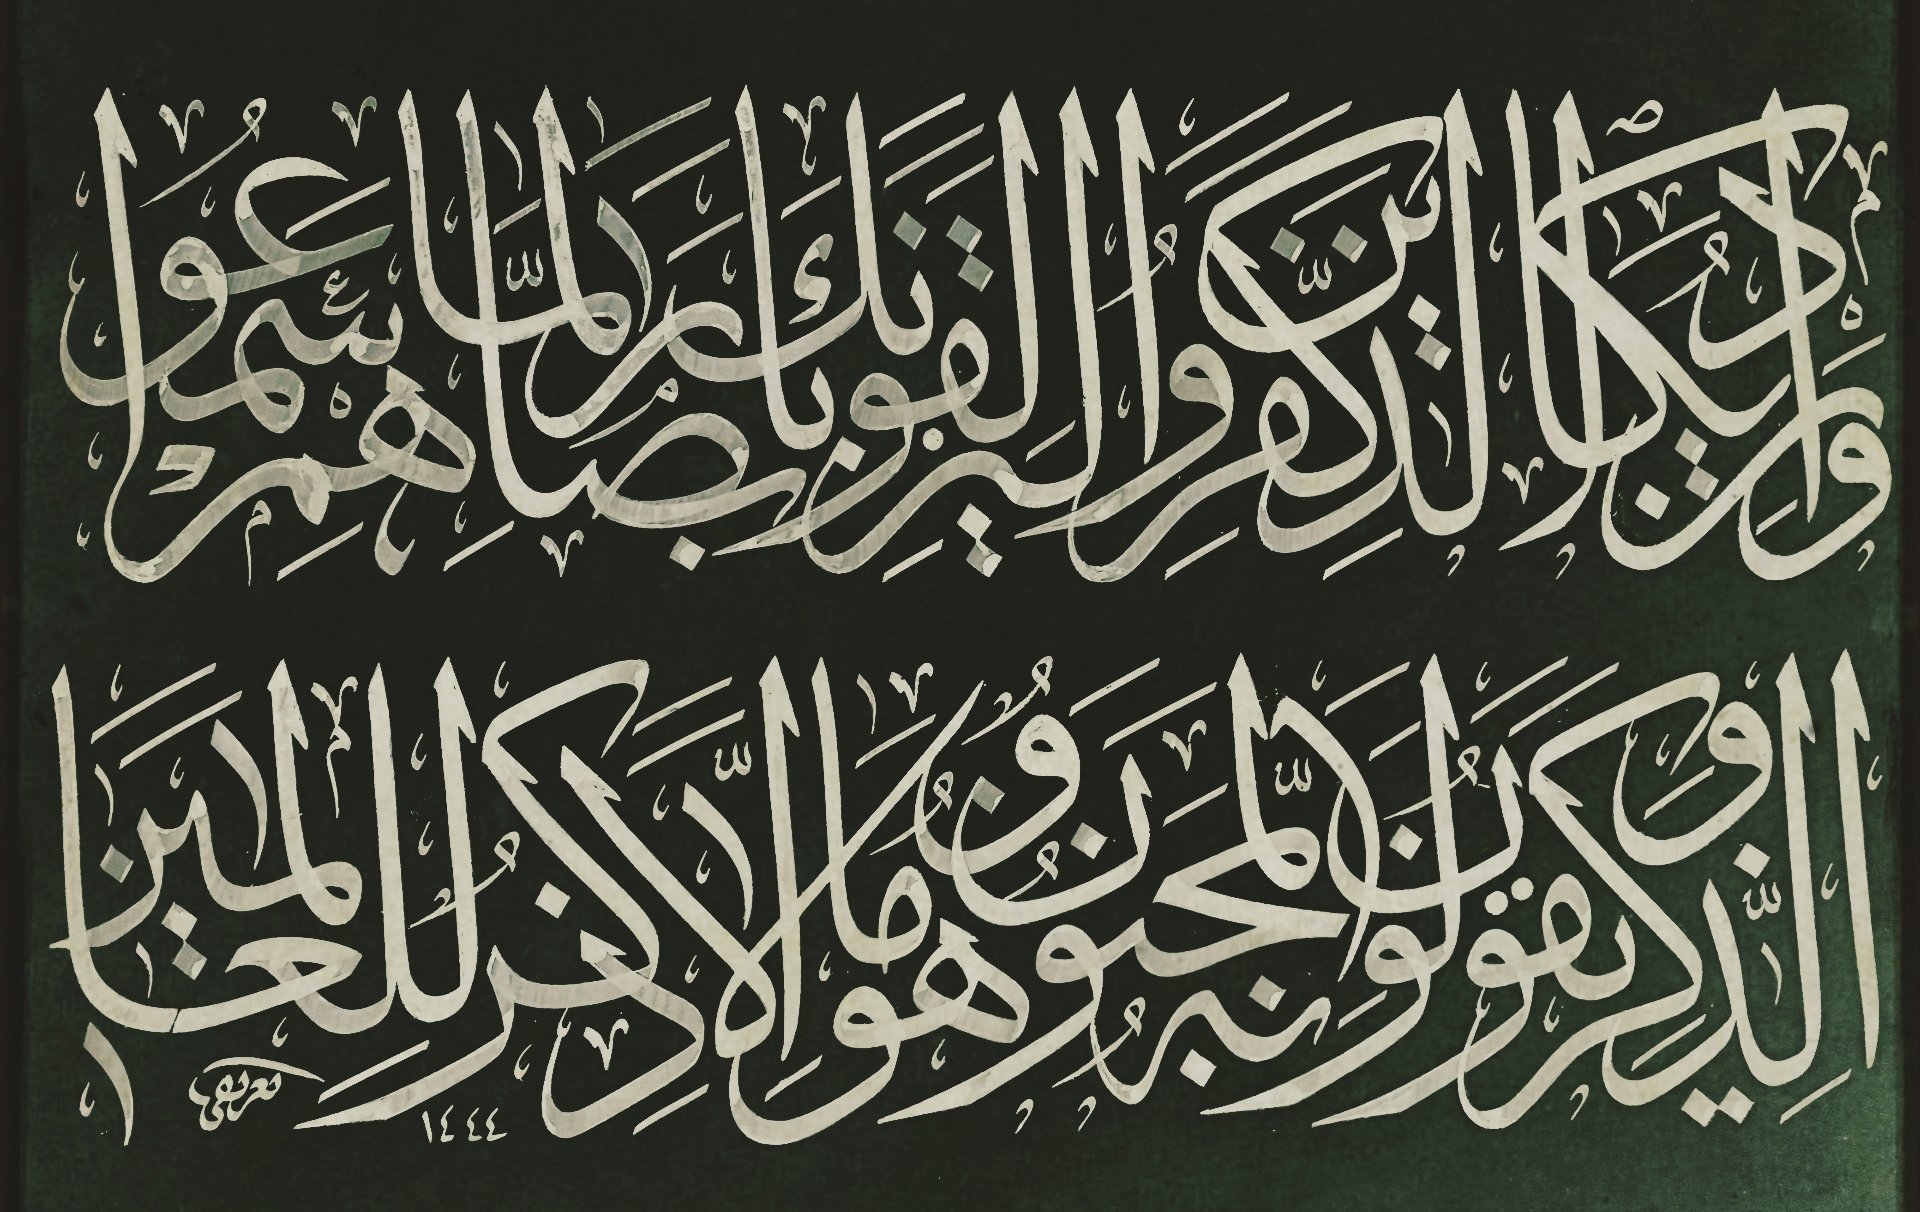 وَإِنْ يَكَادُ الَّذِينَ كَفَرُوا لَيُزْلِقُونَكَ بِأَبْصَارِهِمْ لَمَّا سَمِعُوا
الذِّكْرَ وَيَقُولُونَ إِنَّهُ لَمَجْنُونٌ وَمَا هُوَ إِلَّا ذِكْرٌ لِلْعَالَمِينَ
١٤٤٤